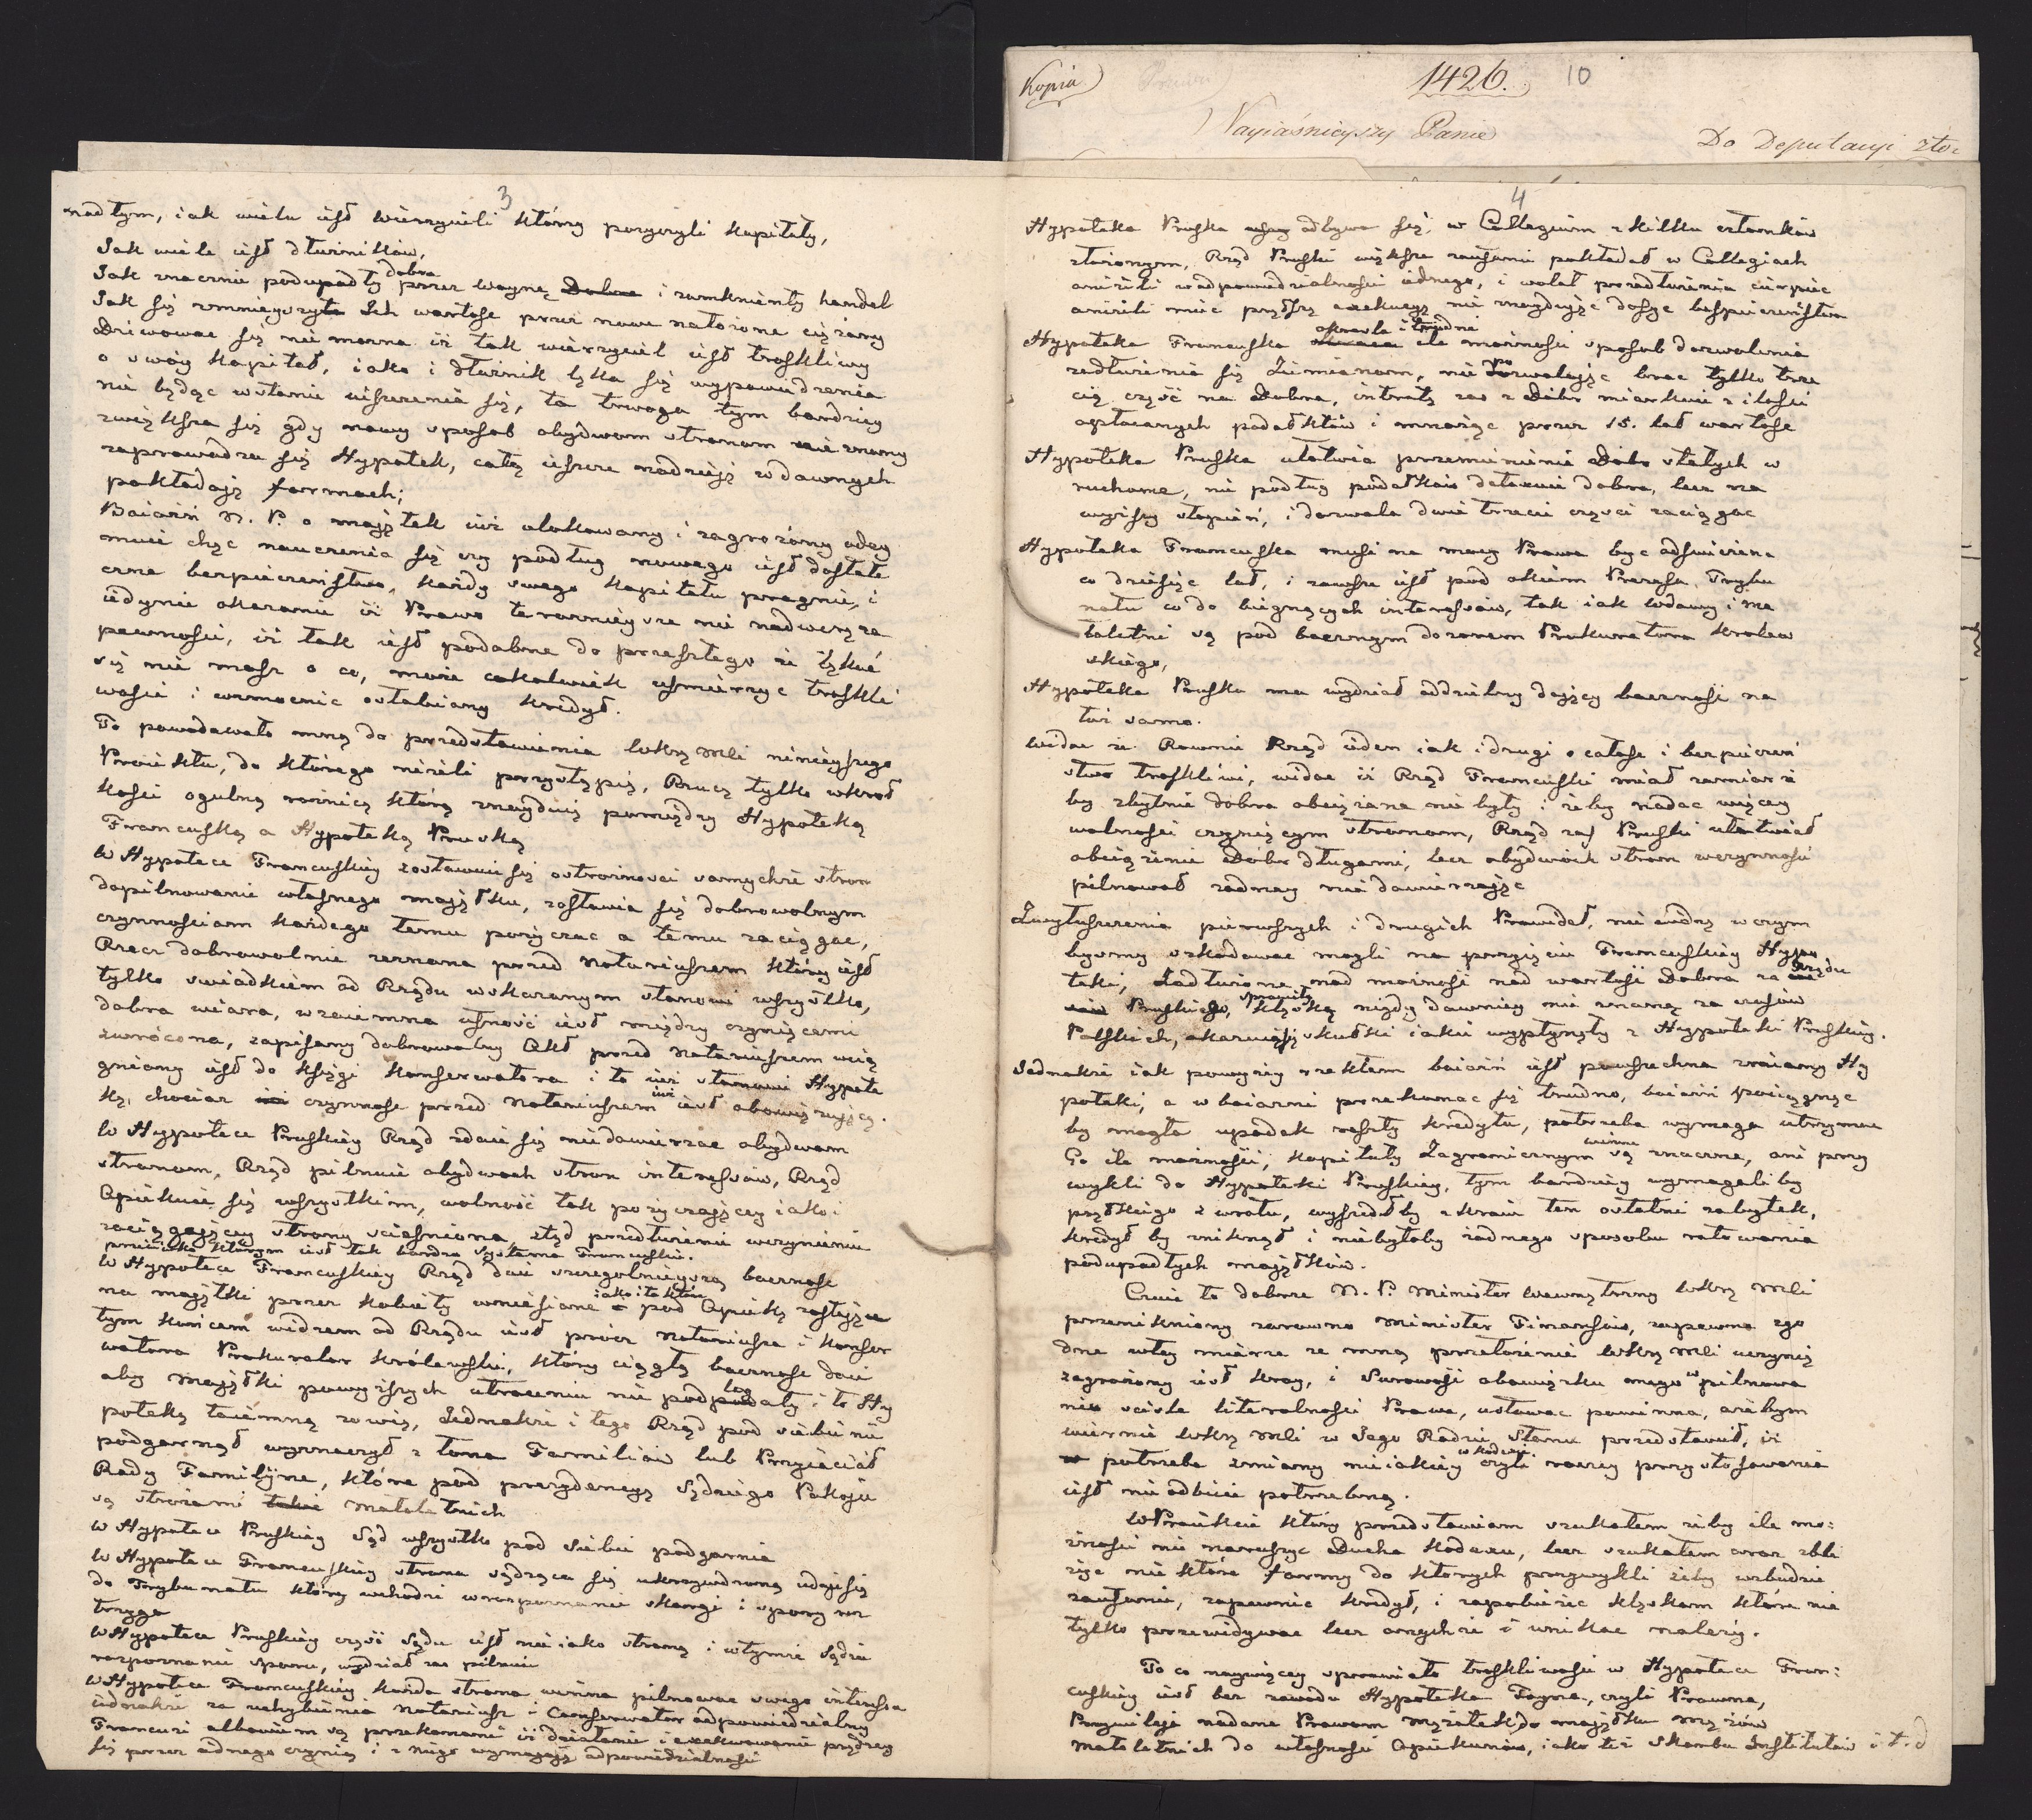 Kopia
1426.
10
Nayiaśnieyszy Panie
Do Deputacyi zło=
3
nad tym, iak wielu iest wierzycieli którzy pozyczyli kapitały,
Jak wiele iest dłużników,
Jak znacznie podupadły przez woynę dobra Dobra i zamknięty handel
Jak się zmnieyszyła Ich wartosc przez nowe nałożone ciężary
Dziwowac się nie mozna iż tak wierzyciel iest troskliwy
o swóy kapitał, iako i dłużnik lęka się wypowiedzenia
nie będąc wstanie uiszczenia się, ta trwoga tym bardziey
zwiększa się gdy nowy sposob obydwom stronom nie znany
zaprowadza się Hypotek, całą ieszcze nadzieię w dawnych
pokładaią formach;
Boiaźń N. P. o maiątek iuż ulokowany i zagrożony odey
muie chęc nauczenia się czy podług nowego iest dostate
czne bezpieczeństwo, każdy swego kapitału pragnie, i
iedynie okazanie iż Prawo teraznieysze nie nadweręża
pewnosci, iż tak iest podobne do przeszłego że lękać
się nie masz o co, może cokolwiek usmierzyc troskli
wosci i wzmocnic osłabiony kredyt.
To powodowało mną do przedstawienia WKrq Mci ninieyszego
Proiektu, do którego niżeli przystąpię, Rzucę tylko wkrót
kosci ogulną rożnicę którą znayduię pomiędzy Hypoteką
Francuską a Hypoteką Pruską
W Hypotece Francuskiey zostawuie się ostrożnosci samychże stron
dopilnowanie własnego maiątku, zostawia się dobrowolnym
czynnosciom każdego temu pożyczac a temu zaciągac,
Rzecz dobrowolnie zeznana przed Notariuszem który iest
tylko swiadkiem od Rządu wskazanym stanowi wszystko,
dobra wiara, wzaiemna ufność iest między czyniącemi
zwrócona, zapisany dobrowolny Akt przed Notariuszem wcią
gniony iest do księgi Konserwatora i to iuż stanowi Hypote
kę, chociaz iuż czynnosc przed Notariuszem iuż iest obowięzuiącą.
W Hypotece Pruskiey Rząd zdaie się niedowierzac obydwom
stronom, Rząd pilnuie obydwoch stron interessów, Rząd
Opiekuie się wszystkim, wolność tak pożyczaiącey iako i
zaciągaiącey strony scieśniona, ztąd przedłużenie uczynieniu
przeciwko którym iest tak bardzo Systema Francuskie.
W Hypotece Francuskiey Rząd daie szczegolnieyszą bacznosc
na maiątki przez kobiety wniesione iako i te które pod Opieką zostaiące
tym końcem widzem od Rządu iest prócz Notariusza i Konser
watora Prokurator królewski, który ciągłą bacznosc daie
aby maiątki powyższych utraceniu nie podpadały i to Hy
poteką taiemną zowię, Jednakże i tego Rząd pod siebie nie
podgarnął wyznaczył z łona Familiów lub Przyiaciół
Rady Familiyne, które pod prezydencyą Sędziego Pokoju
są strożami małoletnich
W Hypotece Pruskiey Sąd wszystko pod Siebie podgarnia
W Hypotece Francuskiey strona sądząca się ukrzywdzoną udaie się
do Trybunału który wchodzi w rozpoznanie skargi i spory roz
trzyga
W Hypotece Pruskiey część Sądu iest nieiako stroną i wtymże Sądzie
rozpoznanie sporu, wydział zas pilnuie
W Hypotece Francuskiey każda strona winna pilnowac swego interessa
iednakże za uchybienia Notariusz i Conserwator odpowiedzialny
Francuzi albowiem są przekonani iż działanie i exekwowanie prędzey
się przez iednego czynią i z niego wymagaią odpowiedzialnosci
4
Hypoteka Pruska odbywa się w Collegium z kilku członków
złożonym, Rząd Pruski większe zaufanie pokładał w Collegiach
aniżeli w odpowiedzialnosci iednego, i wolał przedłużenia cierpiec
aniżeli miec prętszą exekucyą nie znayduiąc dosyc bespieczeństwa
Hypoteka Francuska określa i trudni ile możnosci sposob dozwolenia
zadłużenia się Ziemianom, nie pozwalaiąc brac tylko trze
cią część na Dobra, intratę zas z Dóbr miarkuie z ilosci
opłacanych podatków i mnożąc przez 15. lat wartosc
Hypoteka Pruska ułatwia przemienienie Dobr stałych w
ruchome, nie podług podatków detaxuie dobra, lecz na
wyższy stopień, i dozwala dwie trzecie częsci zaciągac
Hypoteka Francuska musi na mocy Prawa byc odswieżona
co dziesięc lat, i zawsze iest pod okiem Prezesa Trybu
nału co do biegnących interessów, tak iak wdowy i ma
łoletni są pod bacznym dozorem Prokuratora królew
skiego,
Hypoteka Pruska ma wydział oddzielny daiący bacznosc na
toż samo.
Widac że Rownie Rząd ieden iak i drugi o całosc i bezpieczeń
stwo troskliwi, widac iż Rząd Francuski miał zamiar że
by zbytnie dobra obciążane nie były i żeby nadac więcey
wolnosci czyniącym stronom, Rząd zas Pruski ułatwiał
obciążenie Dóbr długami, lecz obydwóch stron wczynnosci
pilnował żadney niedowierzaiąc
Z wytłuszczenia pierwszych i drugich Prawideł, nie widzę w czym
bysmy szkodowac mogli na przyięciu Francuskiey Hypo
teki, Zadłużone nad możnosc nad wartosc Dobra za Rządu
Pruskiego, sprawiły klęskę nigdy dawniey nie znaną za czasów
Polskich, okazuiąsię skutki iakie wypłynęły z Hypoteki Pruskiey.
Jednakże iak powyżey rzekłem boiaźń iest powszechna zmiany Hy
poteki, a w boiazni przekonac się trudno, boiaźń pociągnąc
by mogła upadek reszty kredytu, potrzeba wymaga utrzymac
Go ile możności, kapitały Zagranicznym winne są znaczne, ani przy
wykli do Hypoteki Pruskiey, tym bardziey wymagaliby
prętkiego zwrotu, wyszedłby z kraiu ten ostatni zabytek,
kredyt by zniknął i niebyłoby żadnego sposobu ratowania
podupadłych maiątków.
Czuie to dobrze N. P. Minister Wewnętrzny WKrq Mci
przenikniony zarowno Minister Finansów, zapewne zgo
dne wtey mierze ze mną przełożenie WKrq Mci uczynią
zagrożony iest kray, i Surowosc obowiązku mego w pilnowa
niu scisle literalnosci Prawa, ustawac powinna, ażebym
wiernie WKrq Mci w Jego Radzie Stanu przedstawił, iż
potrzeba zmiany nieiakiey w kodexie czyli raczey przystosowania
iest nieodbicie potrzebną.
W Proiekcie który przedstawiam szukałem żeby ile mo=
żnosci nie naruszyc Ducha Kodexu, lecz szukałem oraz zbli
życ niektóre formy do których przywykli żeby wzbudzic
zaufanie, zapewnic kredyt, i zapobieżec klęskom które nie
tylko przewidywac lecz onychże i unikac należy.
To co naywięcey sprawiało troskliwosci w Hypotece Fran=
cuskiey iest bez zawodu Hypoteka Tayna, czyli Prawna,
Przywileje nadane Prawom mężatek do maiątku mężów
małoletnich do własnosci Opiekunów, iako też Skarbu Institutów i t. d